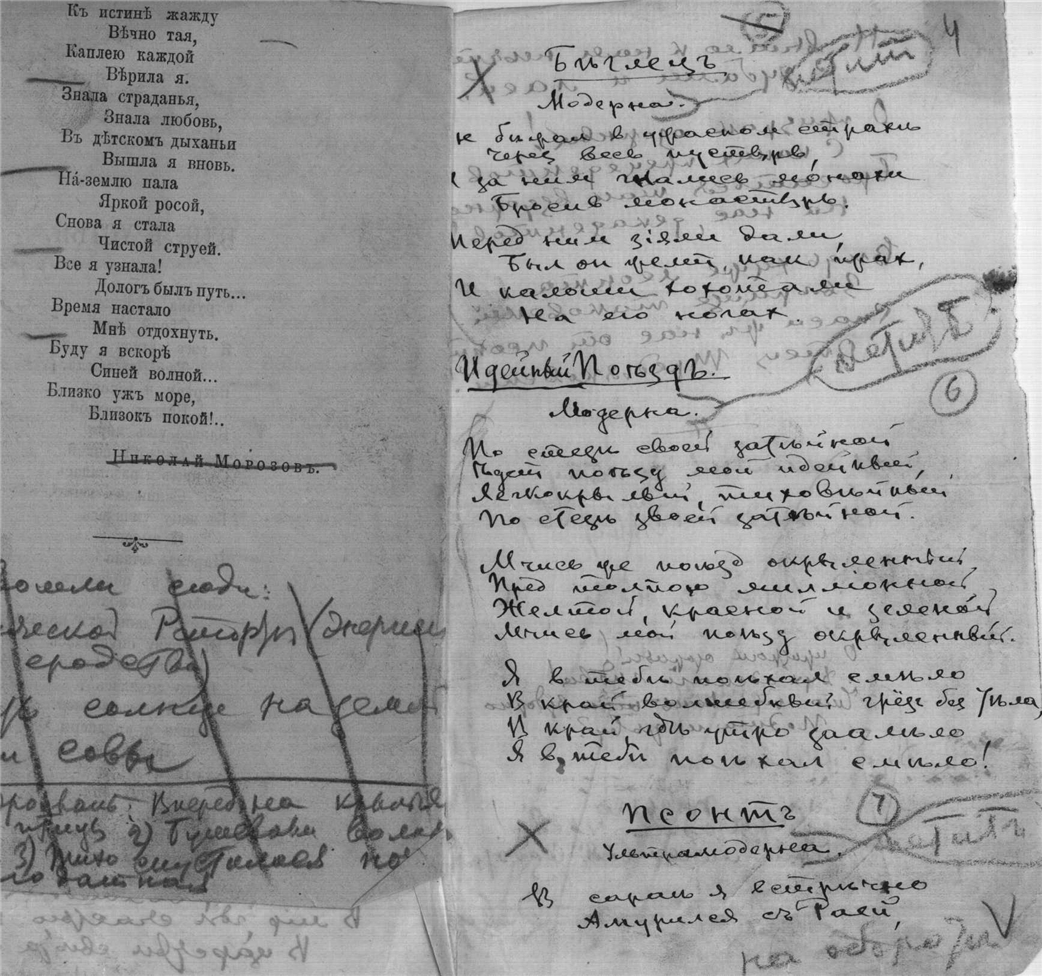 Къ истинѣ жажду
Вѣчно тая,
Каплею каждой
Вѣрила я.
Знала страданья,
Знала любовь,
Въ дѣтскомъ дыханьи
Вышла я вновь.
На́-землю пала
Яркой росой,
Снова я стала
Чистой струей.
Все я узнала!
Дологъ былъ путь...
Время настало
Мнѣ отдохнуть.
Буду я вскорѣ
Синей волной...
Близко ужъ море,
Близокъ покой!..
Николай Морозовъ.
люди:
ческой
сродства)
солнце на земл
совы
Впередъ на крыльях
птицъ 2)
3) Тихо опустился на
4
Бѣглецъ
петит
Модерна.
бежал в ужасном страхѣ
Через весь пустырь,
за ним гнались монахи
Бросив монастырь.
Перед ним зіяли дали,
Был он желт, как прах,
И калоши хохотали
На его ногах.
петитъ
Идейный Поѣздъ.
6
Модерна.
По стезѣ своей затѣйной
Ѣдет поѣзд мой идейный,
Легкокрылый, тиховѣйный
По стезѣ своей затѣйной.
Мчись же поѣзд окрыленный
Пред толпою милліонной
Желтой, красной и зеленой
Мчись мой поѣзд окрыленный.
Я в тебѣ поѣхал смѣло
В край волшебный грёз без тѣла,
В край гдѣ утро заалѣло
Я в тебѣ поѣхал смѣло!
7
Псонтъ
петитъ
Ультрамодерна.
В сараѣ я встрѣчно
Амурился съ Раей,
на оборотѣ